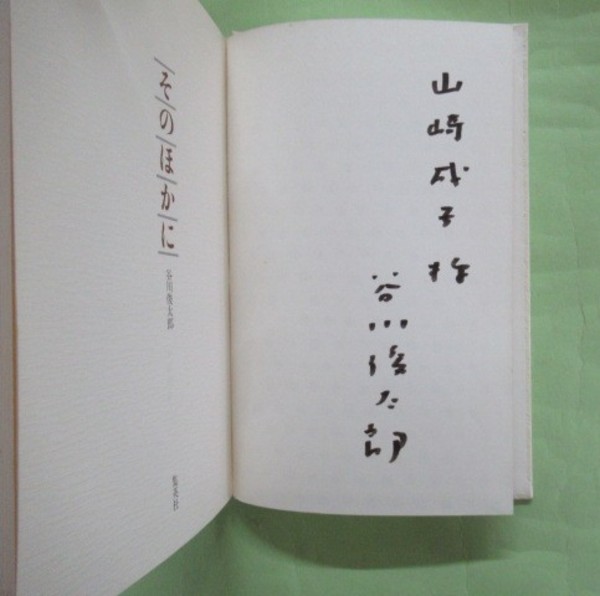 山崎成子様
谷川俊太郎
そのほかに
谷川俊太郎
集英社